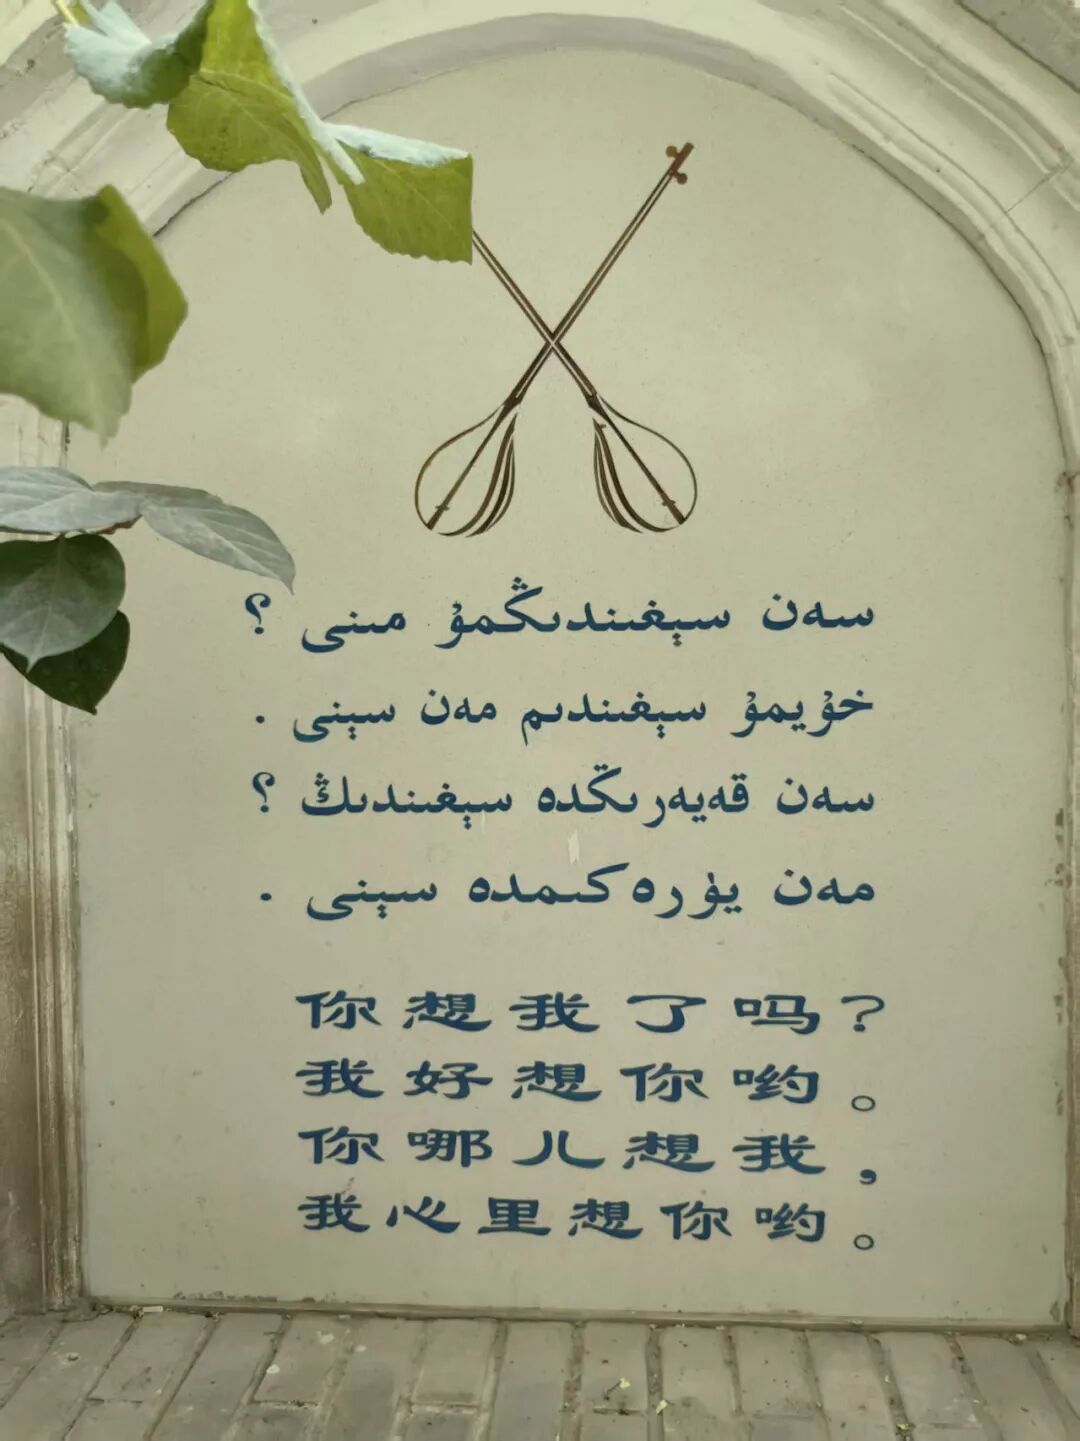 سەن سېغىندىڭمۇ مىنى ؟
خۇيمۇ سېغىندىم مەن سېنى .
سەن قەيەرىڭدە سېغىندىڭ ؟
مەن يۈرەكىمدە سېنى .
你想我了吗?
我好想你哟。
你哪儿想我,
我心里想你哟。